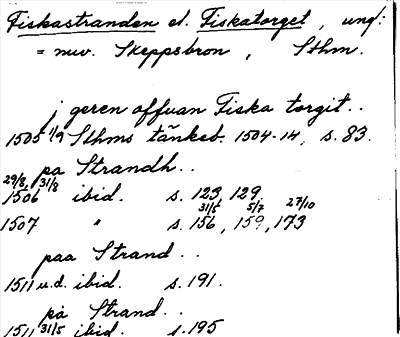 Fiskastranden el. Fiskatorget, ung:
= nuv. Skeppsbron, Sthm.
j geren offuan Fiska torgit..
1505 1/9 Sthms tänkeb. 1504-14, s. 83.
pa Strandh..
29/8, 31/8
1506 ibid. s. 123, 129
31/5 5/7 27/10
1507 " s. 156, 159, 173
paa Strand..
1511 u.d. ibid. s. 191.
på Strand..
1511 31/5 ibid. s. 195